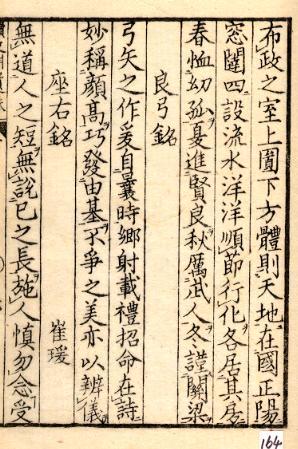 布政之室上圓下方體則天地在國正陽
窓闥四設流水洋洋順節行化各居其房
春恤幼孤夏進賢良秋厲武人冬謹關梁
良弓銘
弓矢之作爰自曩時鄉射載禮招命在詩
妙稱顏高巧發由基不爭之美亦以辨儀
座右銘 崔瑗
無道人之短無說己之長施人慎勿念受
164